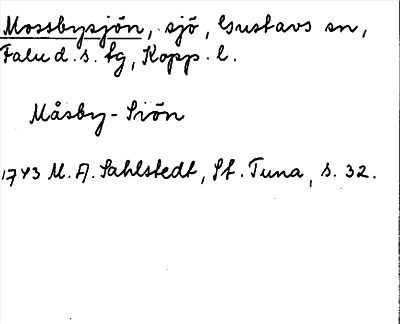 Mossbysjön, sjö, Gustavs sn,
Falu d. s. tg, Kopp. l.
Måsby-Siön
1743 M. A. Sahlstedt, St. Tuna, s. 32.